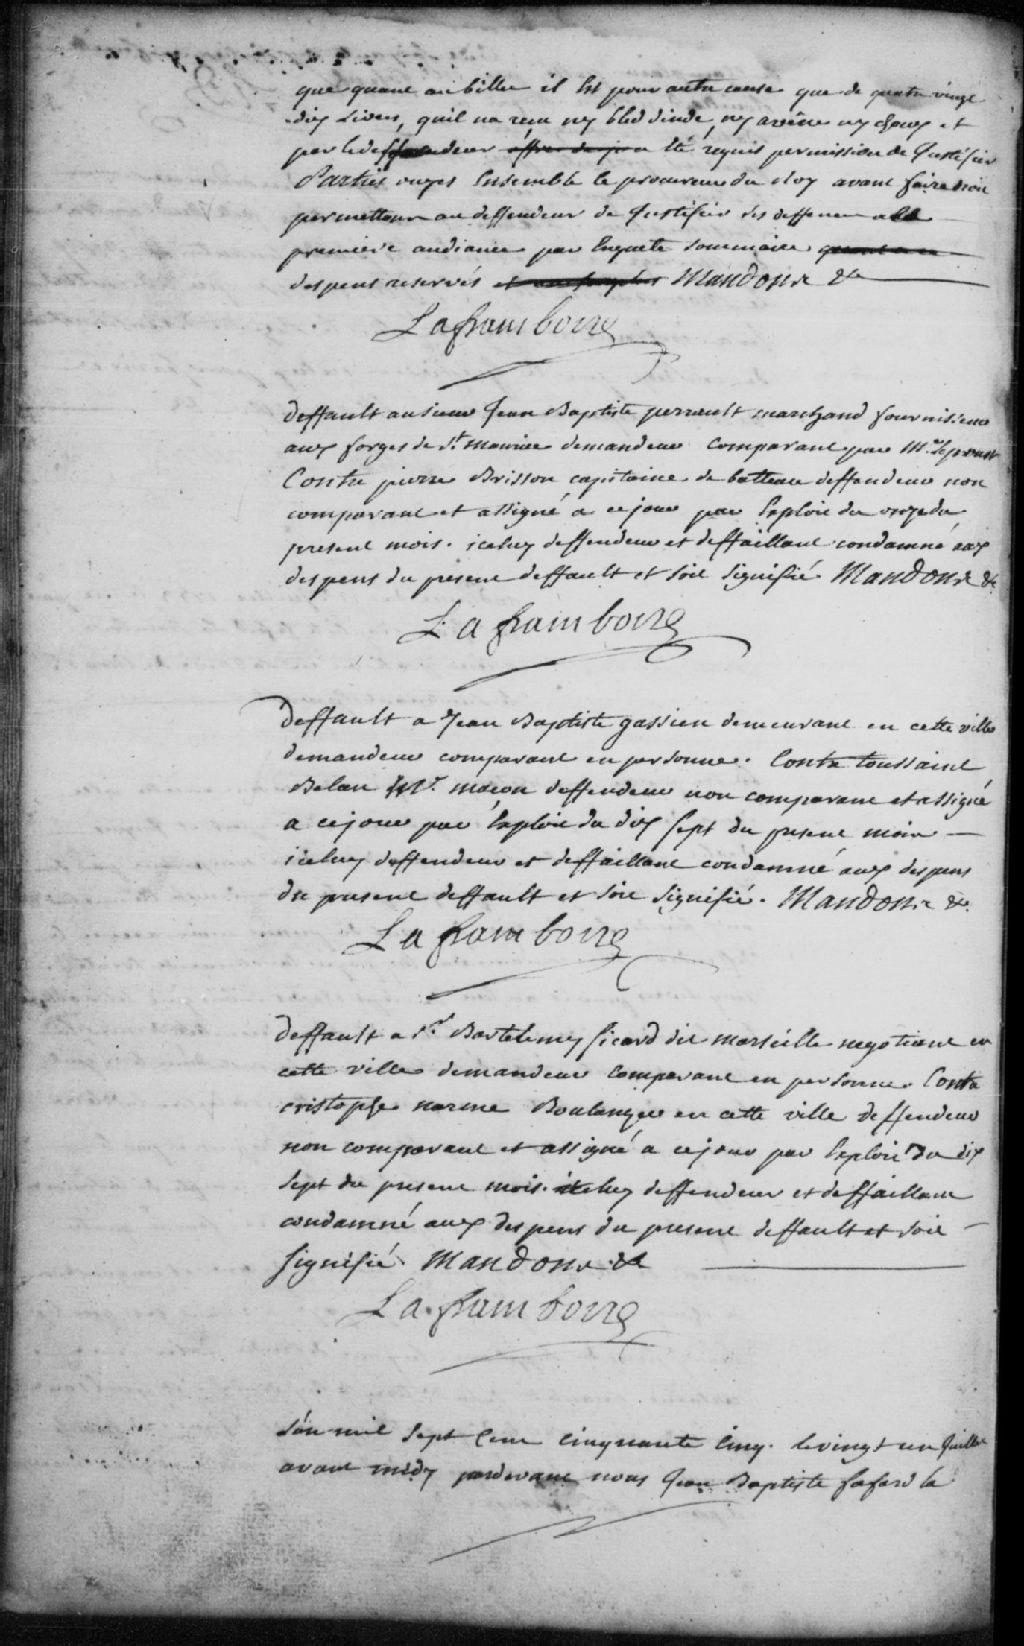 que quant au billet il est pour autre cause que de quatre vingt
dix Livres, quil na recu ny bled dinde, ny avoine ny choux et
par le deffendeur offre de a été requis permission de Justifier
Parties ouyes Ensemble le procureur du Roy avant faire droit
permettons au deffendeur de Justifier ses deffences a la
premiere audiance par Enquete sommaire
despens reservés Mandons &a
Laframboise
deffault au sieur Jean Baptiste perrault marchand fournisseur
aux forges de St maurice demandeur comparant par Mr.
Contre pierre Brisson capitaine de batteau deffendeur non
comparant et assigné a ce jour par Exploit du onze du
present mois. iceluy deffendeur et deffaillant condamné aux
despens du present deffault et soit signifié Mandons &a
Laframboise
deffault a Jean Baptiste gassien demeurant en cette ville
demandeur comparant en personne. Contre toussaint
Belan Mr. macon deffendeur non comparant et assigné
a ce jour par Exploit du dix sept du present mois
iceluy deffendeur et deffaillant condamné aux despens
du present deffault et soit signifié. Mandons &a
Laframboise
deffault a Sr Bartelemy sicard dit marseille negotiant en
cette ville demandeur comparant en personne Contre
cristophe Boulanger en cette ville deffendeur
non comparant et assigné a ce jour par Exploit du dix
sept du present mois. iceluy deffendeur et deffaillant
condamné aux despens du present deffault et soit
signifié Mandons &a
Laframboise
L'an mil sept Cent Cinquante Cinq. le vingt un Juillet
avant midy pardevant nous Jean Baptiste fafard la